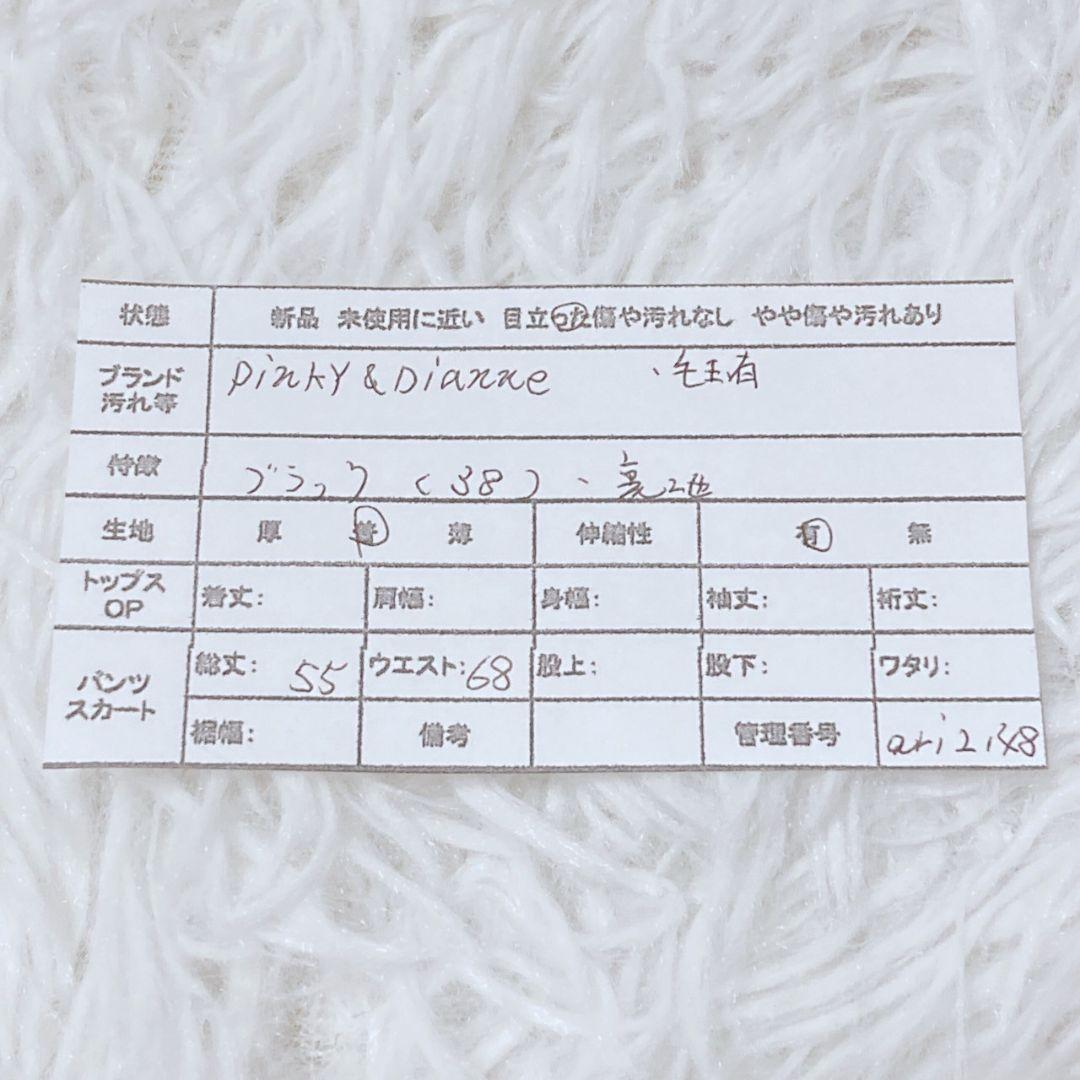 状態 新品 未使用に近い 目立った傷や汚れなし やや傷や汚れあり
ブランド 汚れ等 pinky & Dianne 、毛玉有
特徴 ブラック (38)、裏地
生地 厚 普 薄 伸縮性 有 無
トップス OP 着丈: 肩幅: 身幅: 袖丈: 裄丈:
パンツ スカート 総丈: 55 ウエスト: 68 股上: 股下: ワタリ:
裾幅: 備考 管理番号 ari2148